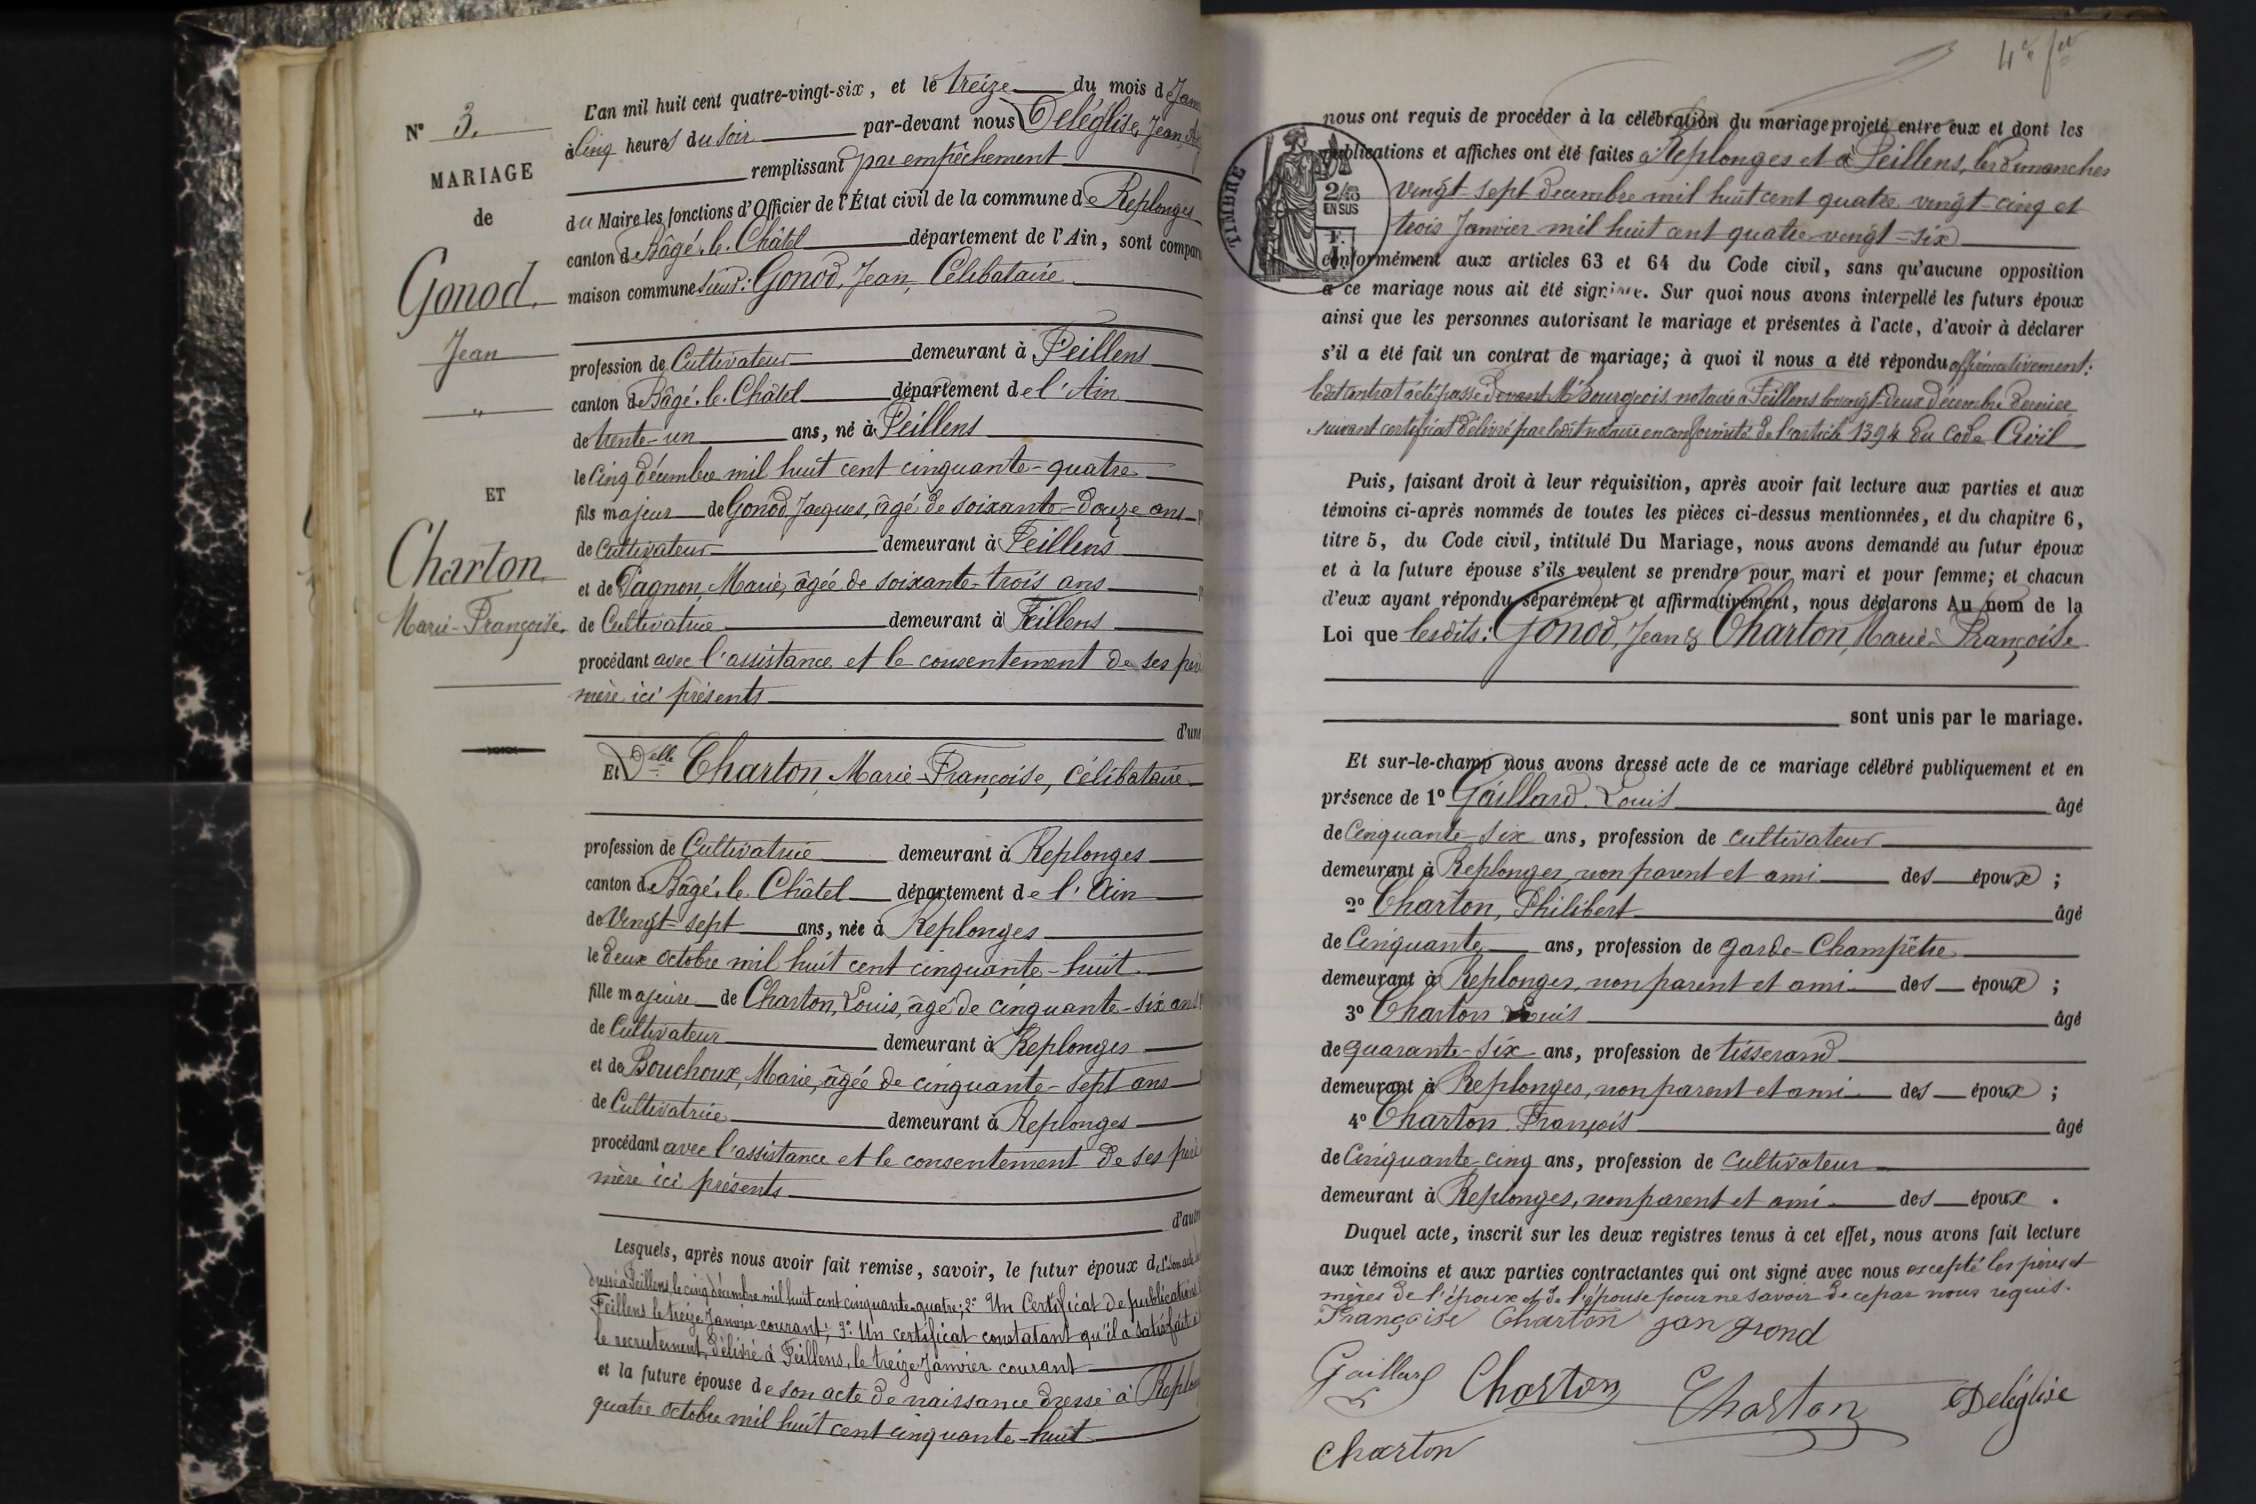 N° 3.
MARIAGE
de
Gonod
Jean
"
ET
Charton
Marie-Françoise.
L'an mil huit cent quatre-vingt-six, et le treize du mois d Janv
à Cinq heures du soir par-devant nous Deléglise, Jean,
remplissant par empêchement
du Maire les fonctions d'Officier de l'État civil de la commune de Replonges
canton de Bâgé-le-Châtel département de l'Ain, sont compar
maison commune sieur: Gonod, Jean, Célibataire
profession de Cultivateur demeurant à Feillens
canton de Bâgé-le-Châtel département de l'Ain
de trente-un ans, né à Feillens
le Cinq décembre mil huit cent cinquante-quatre
fils majeur de Gonod Jacques, âgé de soixante-douze ans p
de Cultivateur demeurant à Feillens
et de Pagnon, Marie, âgée de soixante-trois ans p
de Cultivatrice demeurant à Feillens
procédant avec l'assistance et le consentement de ses père
mère ici présents
d'une
Et Delle Charton, Marie-Françoise, Célibataire
profession de Cultivatrice demeurant à Replonges
canton de Bâgé-le-Châtel département de l'Ain
de Vingt-sept ans, née à Replonges
le deux octobre mil huit cent cinquante-huit
fille majeure de Charton, Louis, âgé de cinquante-six ans
de Cultivateur demeurant à Replonges
et de Bouchoux, Marie, âgée de cinquante-sept ans
de Cultivatrice demeurant à Replonges
procédant avec l'assistance et le consentement de ses père
mère ici présents
d'autre
Lesquels, après nous avoir fait remise, savoir, le futur époux de 1° Son acte de
dressé à Feillens le cinq décembre mil huit cent cinquante-quatre; 2° Un Certificat de publications
Feillens le treize Janvier courant; 3° Un certificat constatant qu'il a satisfait à
le recrutement, délivré à Feillens, le treize Janvier courant
et la future épouse de son acte de naissance dressé à Replon
quatre octobre mil huit cent cinquante-huit
4e ft
TIMBRE
2/10
EN SUS
nous ont requis de procéder à la célébration du mariage projeté entre eux et dont les
publications et affiches ont été faites à Replonges et à Feillens, les Dimanches
vingt-sept décembre mil huit cent quatre-vingt-cinq et
trois Janvier mil huit cent quatre-vingt-six
conformément aux articles 63 et 64 du Code civil, sans qu'aucune opposition
à ce mariage nous ait été signifiée. Sur quoi nous avons interpellé les futurs époux
ainsi que les personnes autorisant le mariage et présentes à l'acte, d'avoir à déclarer
s'il a été fait un contrat de mariage; à quoi il nous a été répondu affirmativement:
ledit contrat a été passé devant Me Bourgeois notaire à Feillens le vingt-deux décembre dernier
suivant certificat délivré par ledit notaire en conformité de l'article 1394 du Code Civil
Puis, faisant droit à leur réquisition, après avoir fait lecture aux parties et aux
témoins ci-après nommés de toutes les pièces ci-dessus mentionnées, et du chapitre 6,
titre 5, du Code civil, intitulé Du Mariage, nous avons demandé au futur époux
et à la future épouse s'ils veulent se prendre pour mari et pour femme; et chacun
d'eux ayant répondu séparément et affirmativement, nous déclarons Au nom de la
Loi que lesdits: Gonod, Jean & Charton, Marie-Françoise
sont unis par le mariage.
Et sur-le-champ nous avons dressé acte de ce mariage célébré publiquement et en
présence de 1° Gaillard Louis âgé
de Cinquante-six ans, profession de cultivateur
demeurant à Replonges, non parent et ami des époux ;
2° Charton, Philibert âgé
de Cinquante ans, profession de garde-Champêtre
demeurant à Replonges, non parent et ami des époux ;
3° Charton Louis âgé
de quarante-six ans, profession de tisserand
demeurant à Replonges, non parent et ami des époux ;
4° Charton François âgé
de Cinquante-cinq ans, profession de cultivateur
demeurant à Replonges, non parent et ami des époux .
Duquel acte, inscrit sur les deux registres tenus à cet effet, nous avons fait lecture
aux témoins et aux parties contractantes qui ont signé avec nous excepté les pères et
mères de l'époux et de l'épouse pour ne savoir de ce par nous requis.
Françoise Charton jan gnond
Gaillard Charton Charton Deléglise
Charton